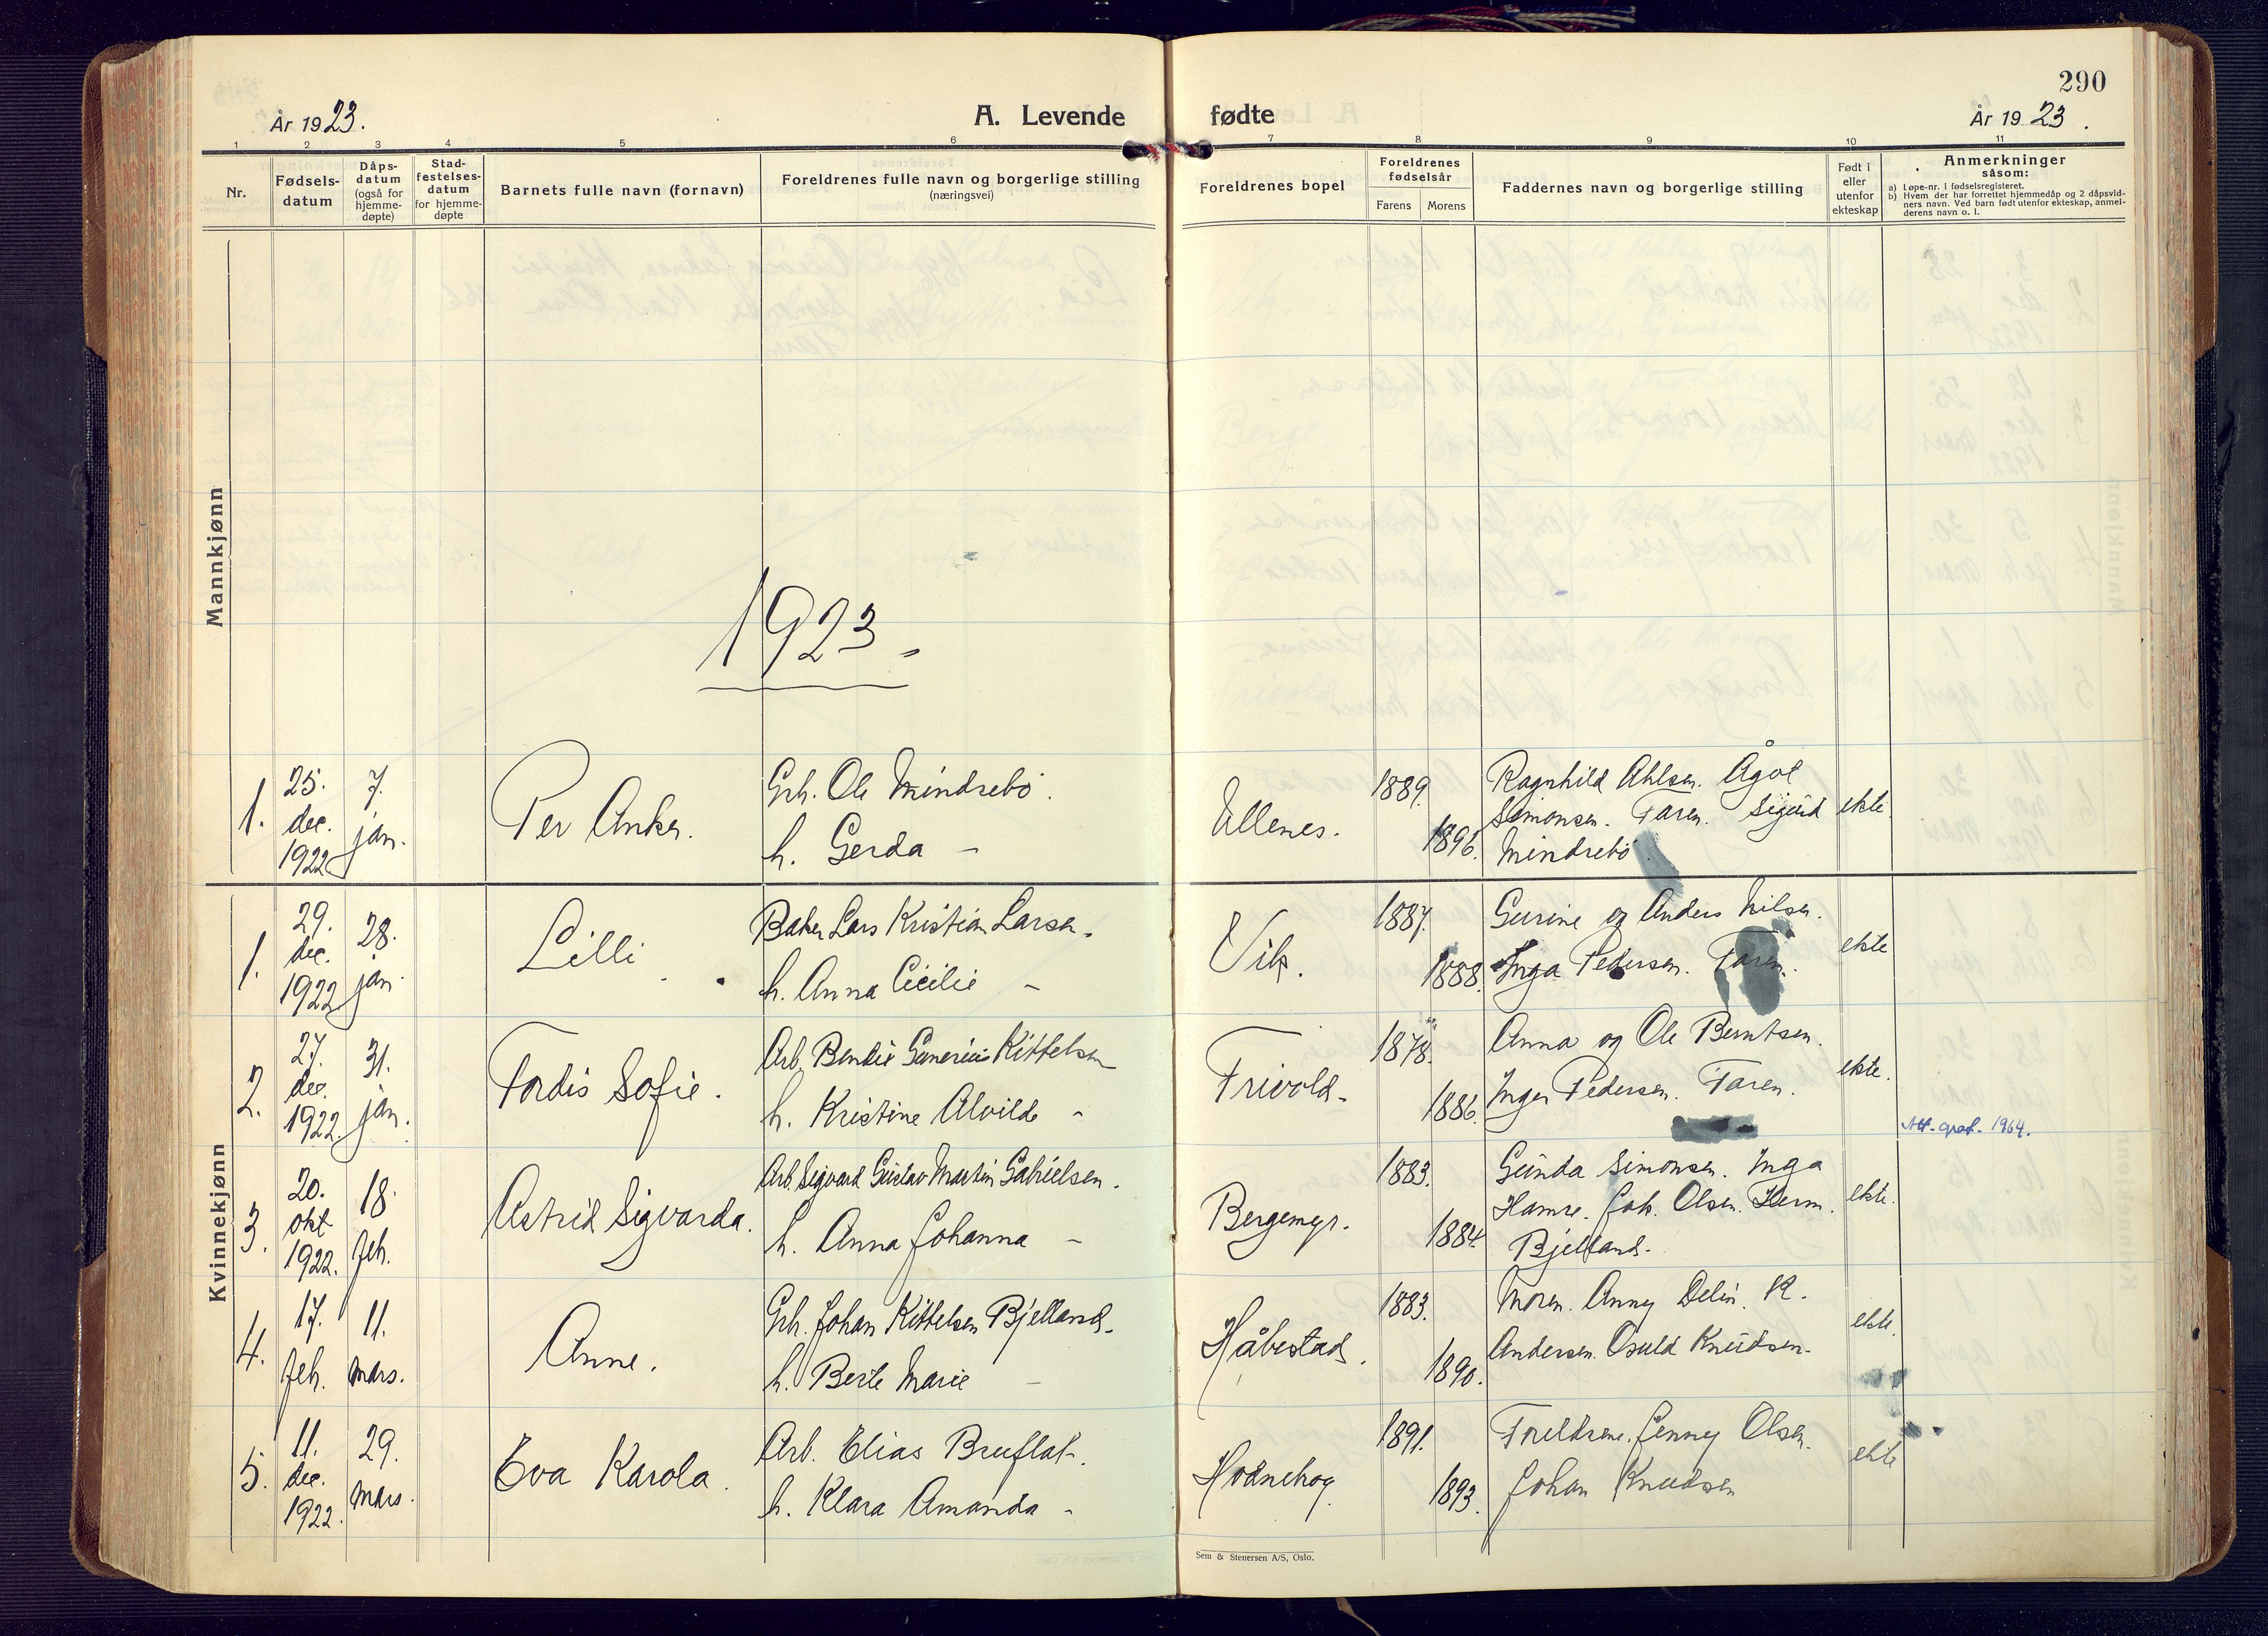 290
År 1923.
A. Levende
fødte
År 1923.
1 2 3 4 5 6 7 8 9 10 11
Nr.
Fødsels-
datum
Dåps-
datum
(også for
hjemme-
døpte)
Stad-
festelses-
datum
for hjemme-
døpte
Barnets fulle navn (fornavn)
Foreldrenes fulle navn og borgerlige stilling
(næringsvei)
Foreldrenes bopel
Foreldrenes
fødselsår
Farens Morens
Faddernes navn og borgerlige stilling
Født i
eller
utenfor
ekteskap
Anmerkninger
såsom:
a) Løpe-nr. i fødselsregisteret.
b) Hvem der har forrettet hjemmedåp og 2 dåpsvid-
ners navn. Ved barn født utenfor ekteskap, anmel-
derens navn o. l.
Mannkjønn
1923
1.
25.
dec.
1922
7.
jan.
Per Anker.
Grb. Ole Mindrebö.
h. Gerda -
Ullenes.
1889.
1896.
Ragnhild Ahlsen. Ågot
Simonsen. Faren. Sigurd
Mindrebö
ekte
Kvinnekjønn
1.
29.
dec.
1922
28.
jan.
Lilli
Baker Lars Kristian Larsen.
h. Anna Cecilie -
Vik.
1887.
1888.
Gurine og Anders Nilsen.
Inga Pedersen. Faren.
ekte
2.
27.
dec.
1922.
31.
jan.
Tordis Sofie.
Arb. Bendix Gunerius Kittelsen
h. Kristine Alvilde -
Frivold.
1878.
1886.
Anna og Ole Berntsen.
Inger Pedersen. Faren.
ekte.
Att. grat. 1964.
3.
20.
okt
1922.
18.
feb.
Astrid Sigvarda.
Arb. Sigvard Gustav Martin Gabrielsen.
h. Anna Johanna -
Bergemyr.
1883.
1884.
Gunda Simonsen. Inga
Hamre. Joh. Olsen. Herm.
Bjelland.
ekte.
4.
17.
feb.
11.
mars.
Anne.
Grb. Johan Kittelsen Bjelland.
h. Berte Marie -
Håbestad.
1883.
1890.
Moren. Anny Delin. K.
Andersen. Osuld Knudsen.
ekte.
5.
11.
dec.
1922.
29.
mars.
Eva Karola.
Arb. Elias Bruflat.
h. Klara Amanda -
Hodnebrog
1891.
1893.
Foreldrene. Jenny Olsen.
Johan Knudsen
ekte
Sem & Stenersen A/S, Oslo.